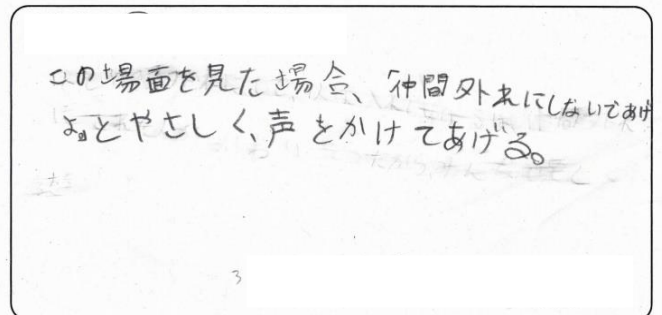 この場面を見た場合、「仲間外れにしないであげ
よ。」とやさしく、声をかけてあげる。
3